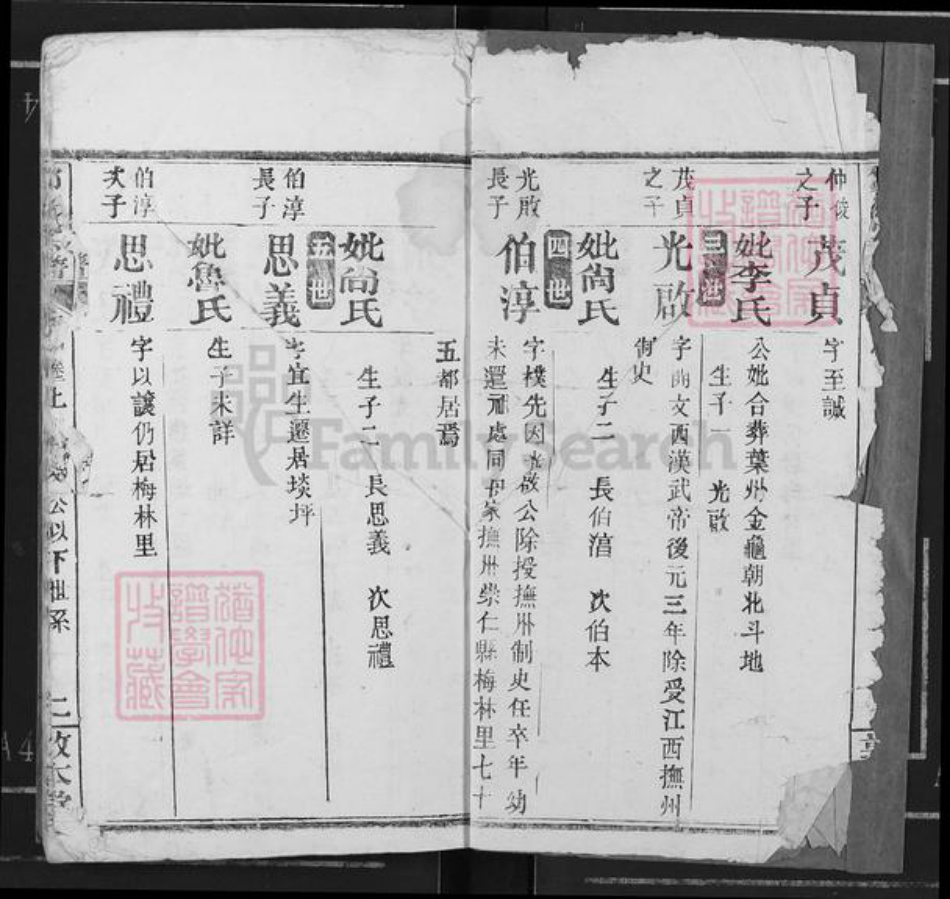 之子
茂貞
字至誠
妣李氏
公妣合葬葉州金龜朝北斗地
生子一 光啟
三世
茂貞
之子
光啟
字開文西漢武帝後元三年除受江西撫州
制史
妣尙氏
生子二 長伯淳 次伯本
四世
光啟
長子
伯淳
字樸先因光啟公除授撫州制史任卒年幼
未還處同家撫州崇仁縣梅林里七十
五都居焉
妣尙氏
生子二 長思義 次思禮
五世
伯淳
長子
思義
字宜生遷居埮坪
妣魯氏
生子未詳
伯淳
次子
思禮
字以讓仍居梅林里
公以下世系
二
FamilySearch
譜學會
收藏